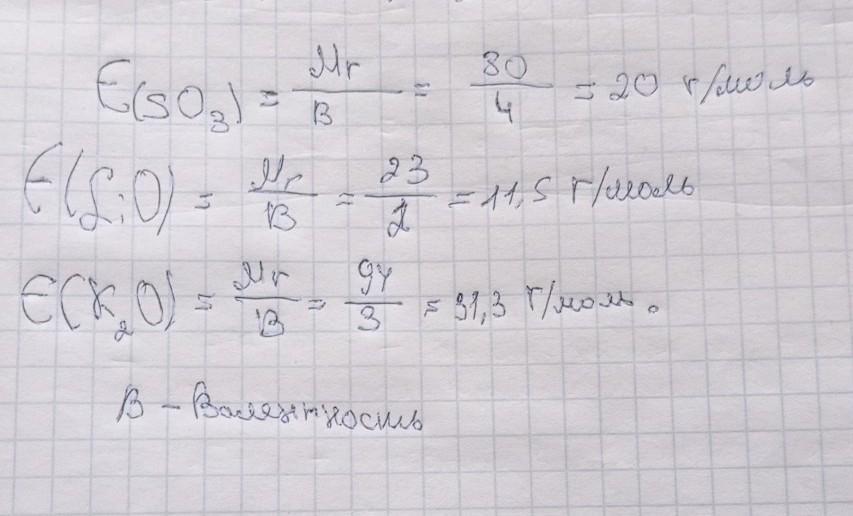 E(SO₃) = Mr/B = 80/4 = 20 г/моль
E(LiO) = Mr/B = 23/2 = 11,5 г/моль
E(K₂O) = Mr/B = 94/3 = 31,3 г/моль.
В – Валентность